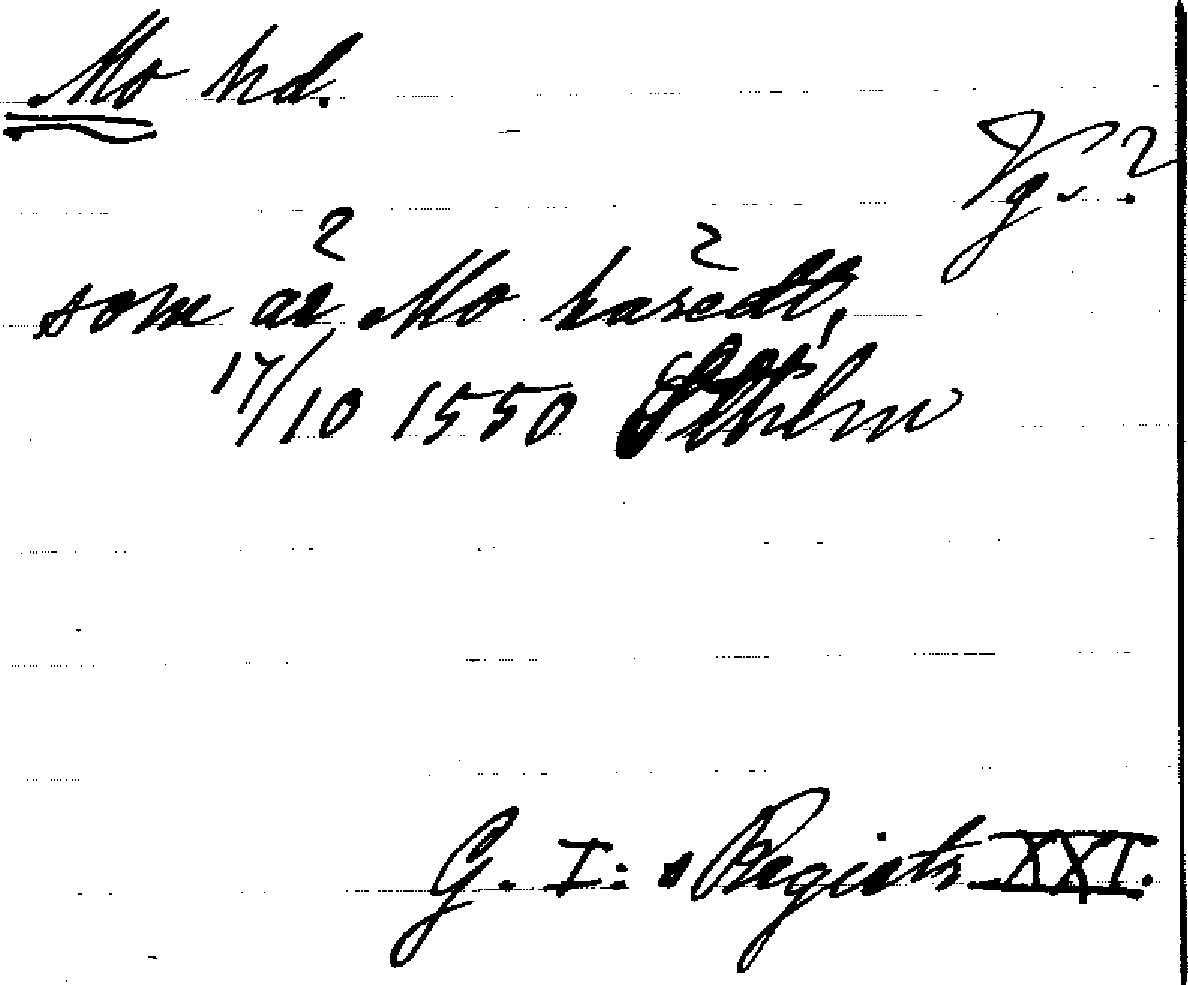 Mo hd.
Vg. ?
som är Mo häredtt,
17/10 1550 Sthlm
G. I:s Registr. XXI.